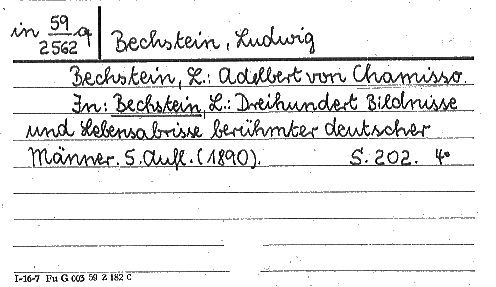 in 59/2562 q Bechstein, Ludwig
Bechstein, L.: Adelbert von Chamisso.
In: Bechstein, L.: Dreihundert Bildnisse
und Lebensabrisse berühmter deutscher
Männer. 5. Aufl. (1890). S. 202. 4°
I-16-7 Fu G 003 59 Z 182 C